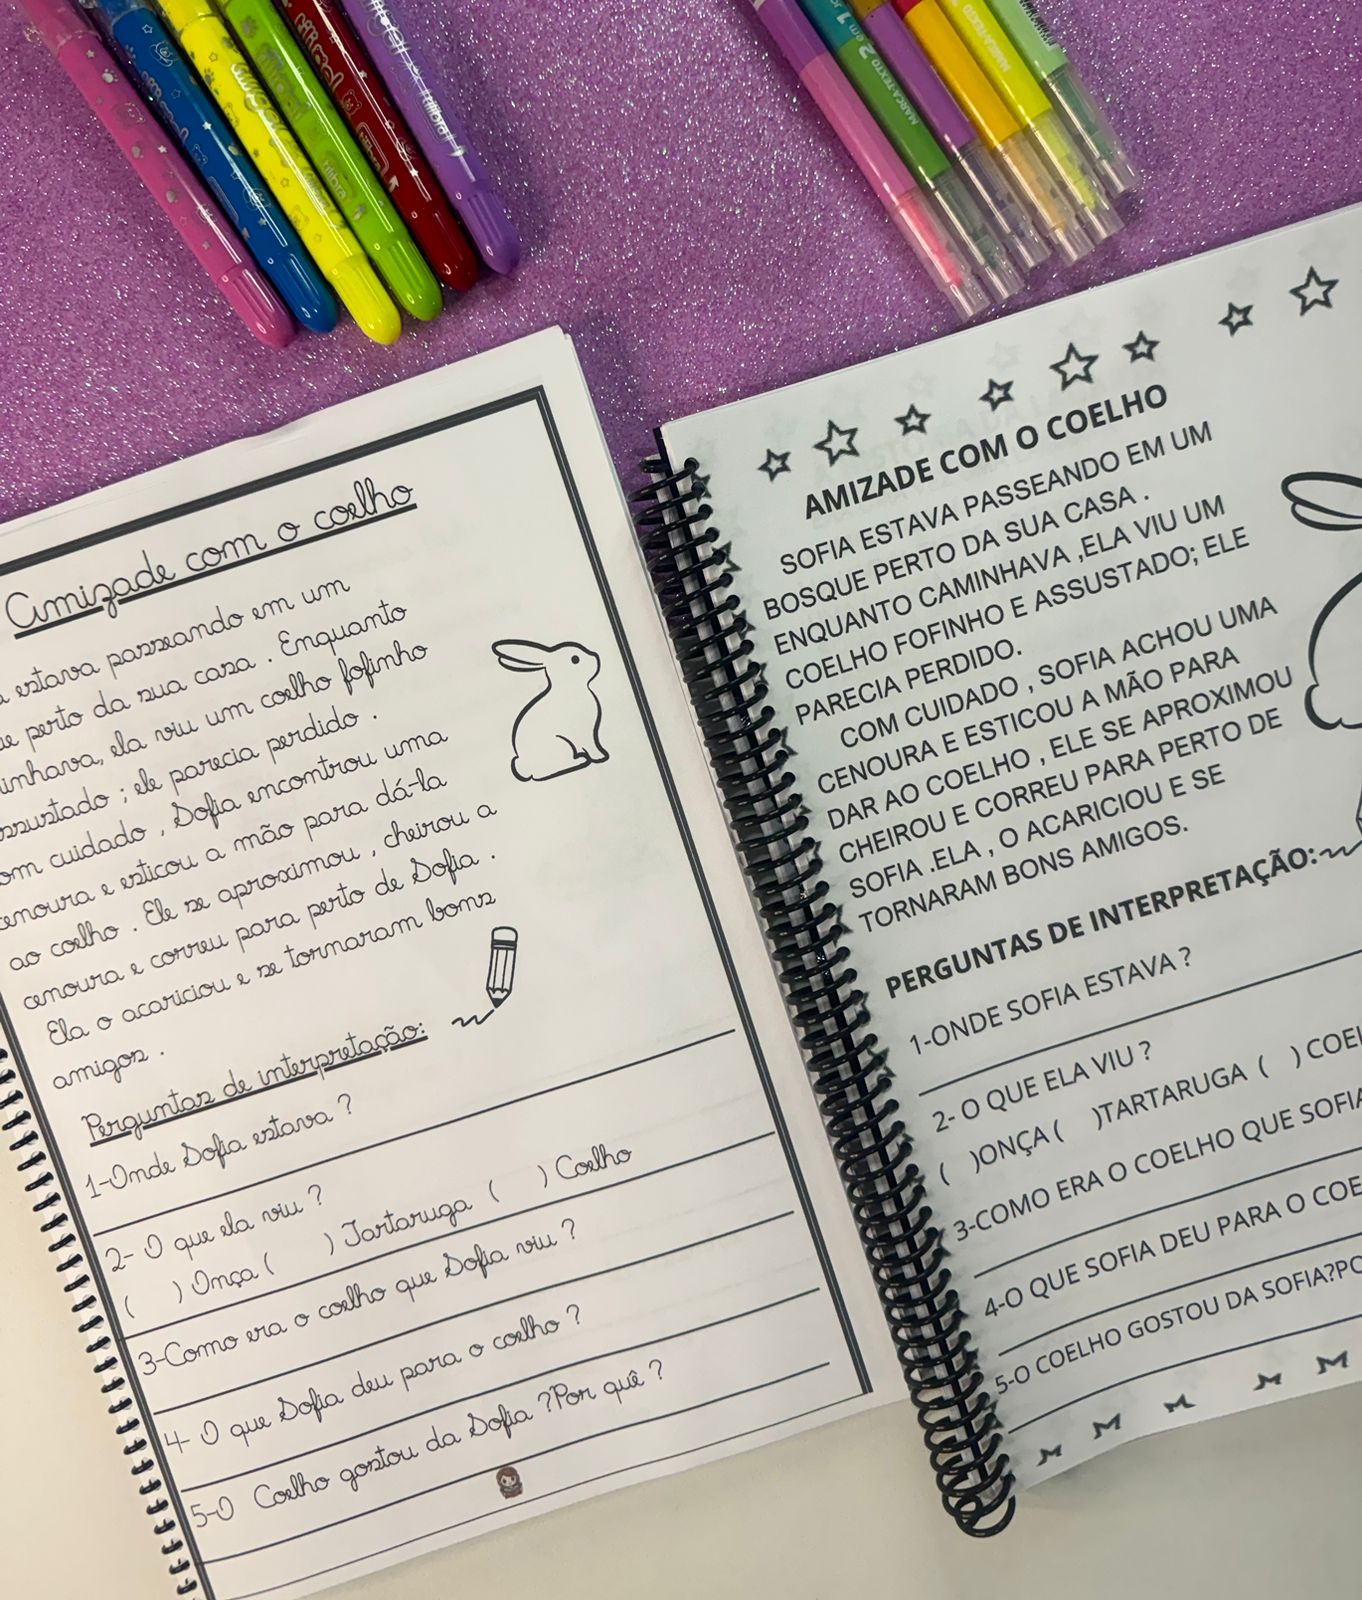 Kilibra
MARCA-TEXTO 2 em 1
MARCA-TEXTO
Amizade com o coelho
estava passeando em um
perto da sua casa . Enquanto
inhava, ela viu um coelho fofinho
assustado ; ele parecia perdido .
om cuidado , Sofia encontrou uma
cenoura e esticou a mão para dá-la
ao coelho . Ele se aproximou , cheirou a
cenoura e correu para perto de Sofia .
Ela o acariciou e se tornaram bons
amigos .
Perguntas de interpretação:
1-Onde Sofia estava ?
2- O que ela viu ?
(    ) Onça (    ) Tartaruga (    ) Coelho
3-Como era o coelho que Sofia viu ?
4- O que Sofia deu para o coelho ?
5-O Coelho gostou da Sofia ?Por quê ?
AMIZADE COM O COELHO
SOFIA ESTAVA PASSEANDO EM UM
BOSQUE PERTO DA SUA CASA .
ENQUANTO CAMINHAVA ,ELA VIU UM
COELHO FOFINHO E ASSUSTADO; ELE
PARECIA PERDIDO.
COM CUIDADO , SOFIA ACHOU UMA
CENOURA E ESTICOU A MÃO PARA
DAR AO COELHO , ELE SE APROXIMOU
CHEIROU E CORREU PARA PERTO DE
SOFIA .ELA , O ACARICIOU E SE
TORNARAM BONS AMIGOS.
PERGUNTAS DE INTERPRETAÇÃO:
1-ONDE SOFIA ESTAVA ?
2- O QUE ELA VIU ?
(    )ONÇA (    )TARTARUGA (    ) COEL
3-COMO ERA O COELHO QUE SOFIA
4-O QUE SOFIA DEU PARA O COE
5-O COELHO GOSTOU DA SOFIA?PO